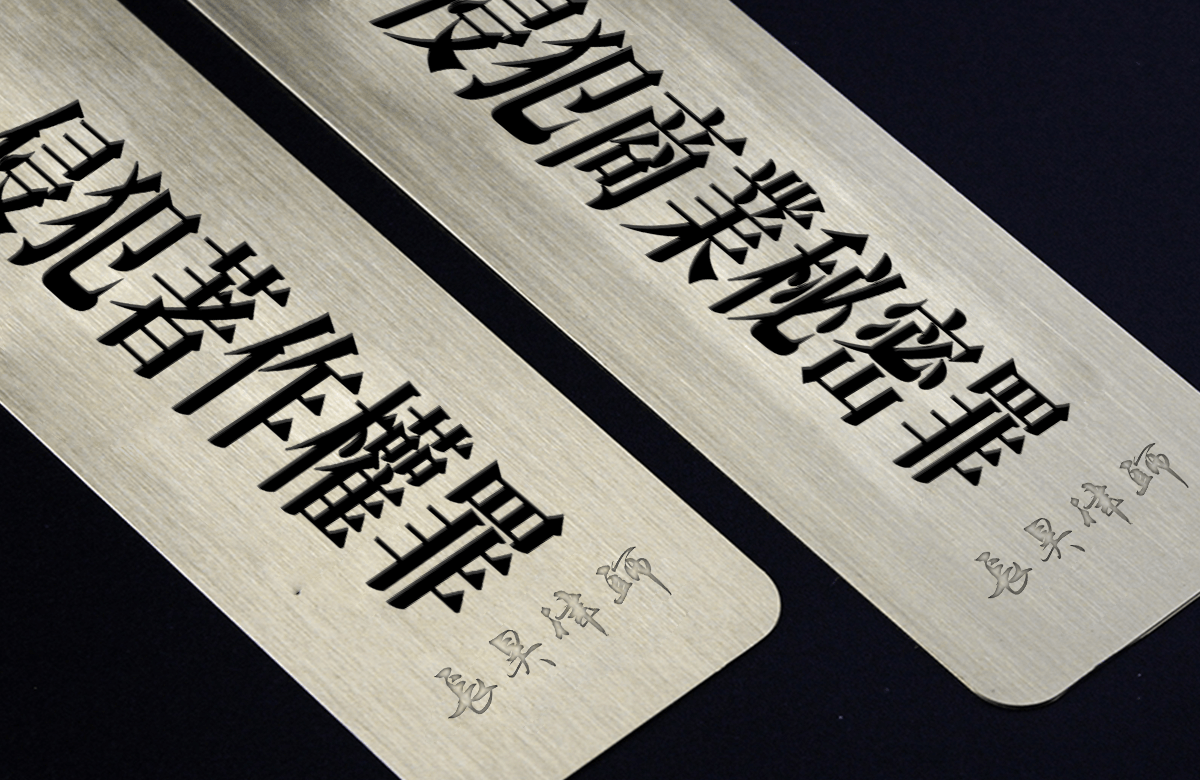 侵犯著作權罪
長昊律師
侵犯商業秘密罪
長昊律師